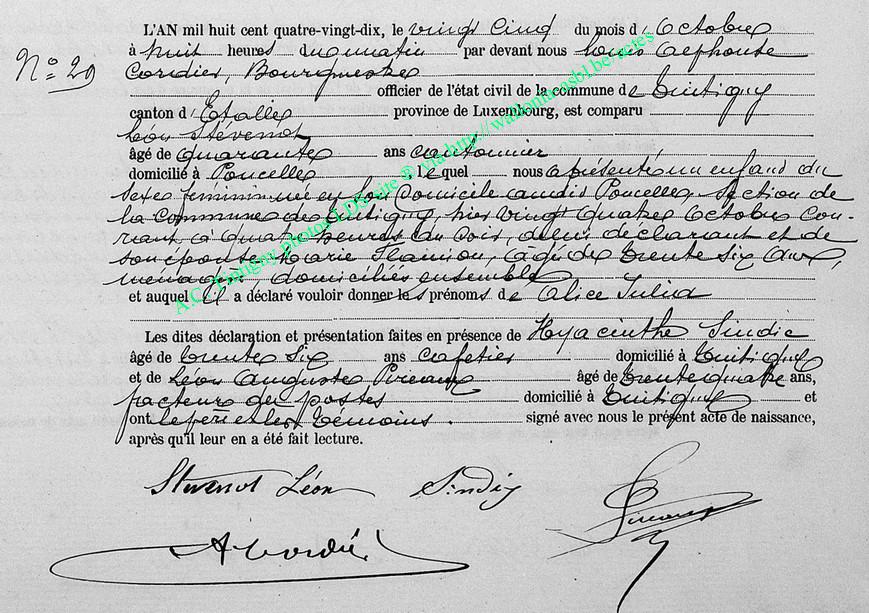 L'AN mil huit cent quatre-vingt-dix, le vingt cinq du mois d'Octobre
à huit heures du matin par devant nous Louis Alphonse
N° 29
Cordier, Bourgmestre
officier de l'état civil de la commune de Tintigny
canton d'Etalle province de Luxembourg, est comparu
Léon Stévenot
âgé de quarante ans cantonnier
domicilié à Poncelle, lequel nous a présenté un enfant du
sexe féminin née en son domicile audit Poncelle, Section de
la commune de Tintigny, hier vingt quatre Octobre cou-
rant, à quatre heures du soir, de lui déclarant et de
son épouse Marie Flamion, âgée de trente six ans,
ménagère, domiciliés ensemble
et auquel il a déclaré vouloir donner les prénoms de Alice Julia
Les dites déclaration et présentation faites en présence de Hyacinthe Sindic
âgé de trente six ans cafetier domicilié à Tintigny
et de Léon Auguste âgé de trente quatre ans,
facteur des postes domicilié à Tintigny et
ont le père et les témoins. signé avec nous le présent acte de naissance,
après qu'il leur en a été fait lecture.
Stévenot Léon Sindic
A Cordier
A.C. Tintigny photos LDS site ® via http://wallonica.asbl.be/actes